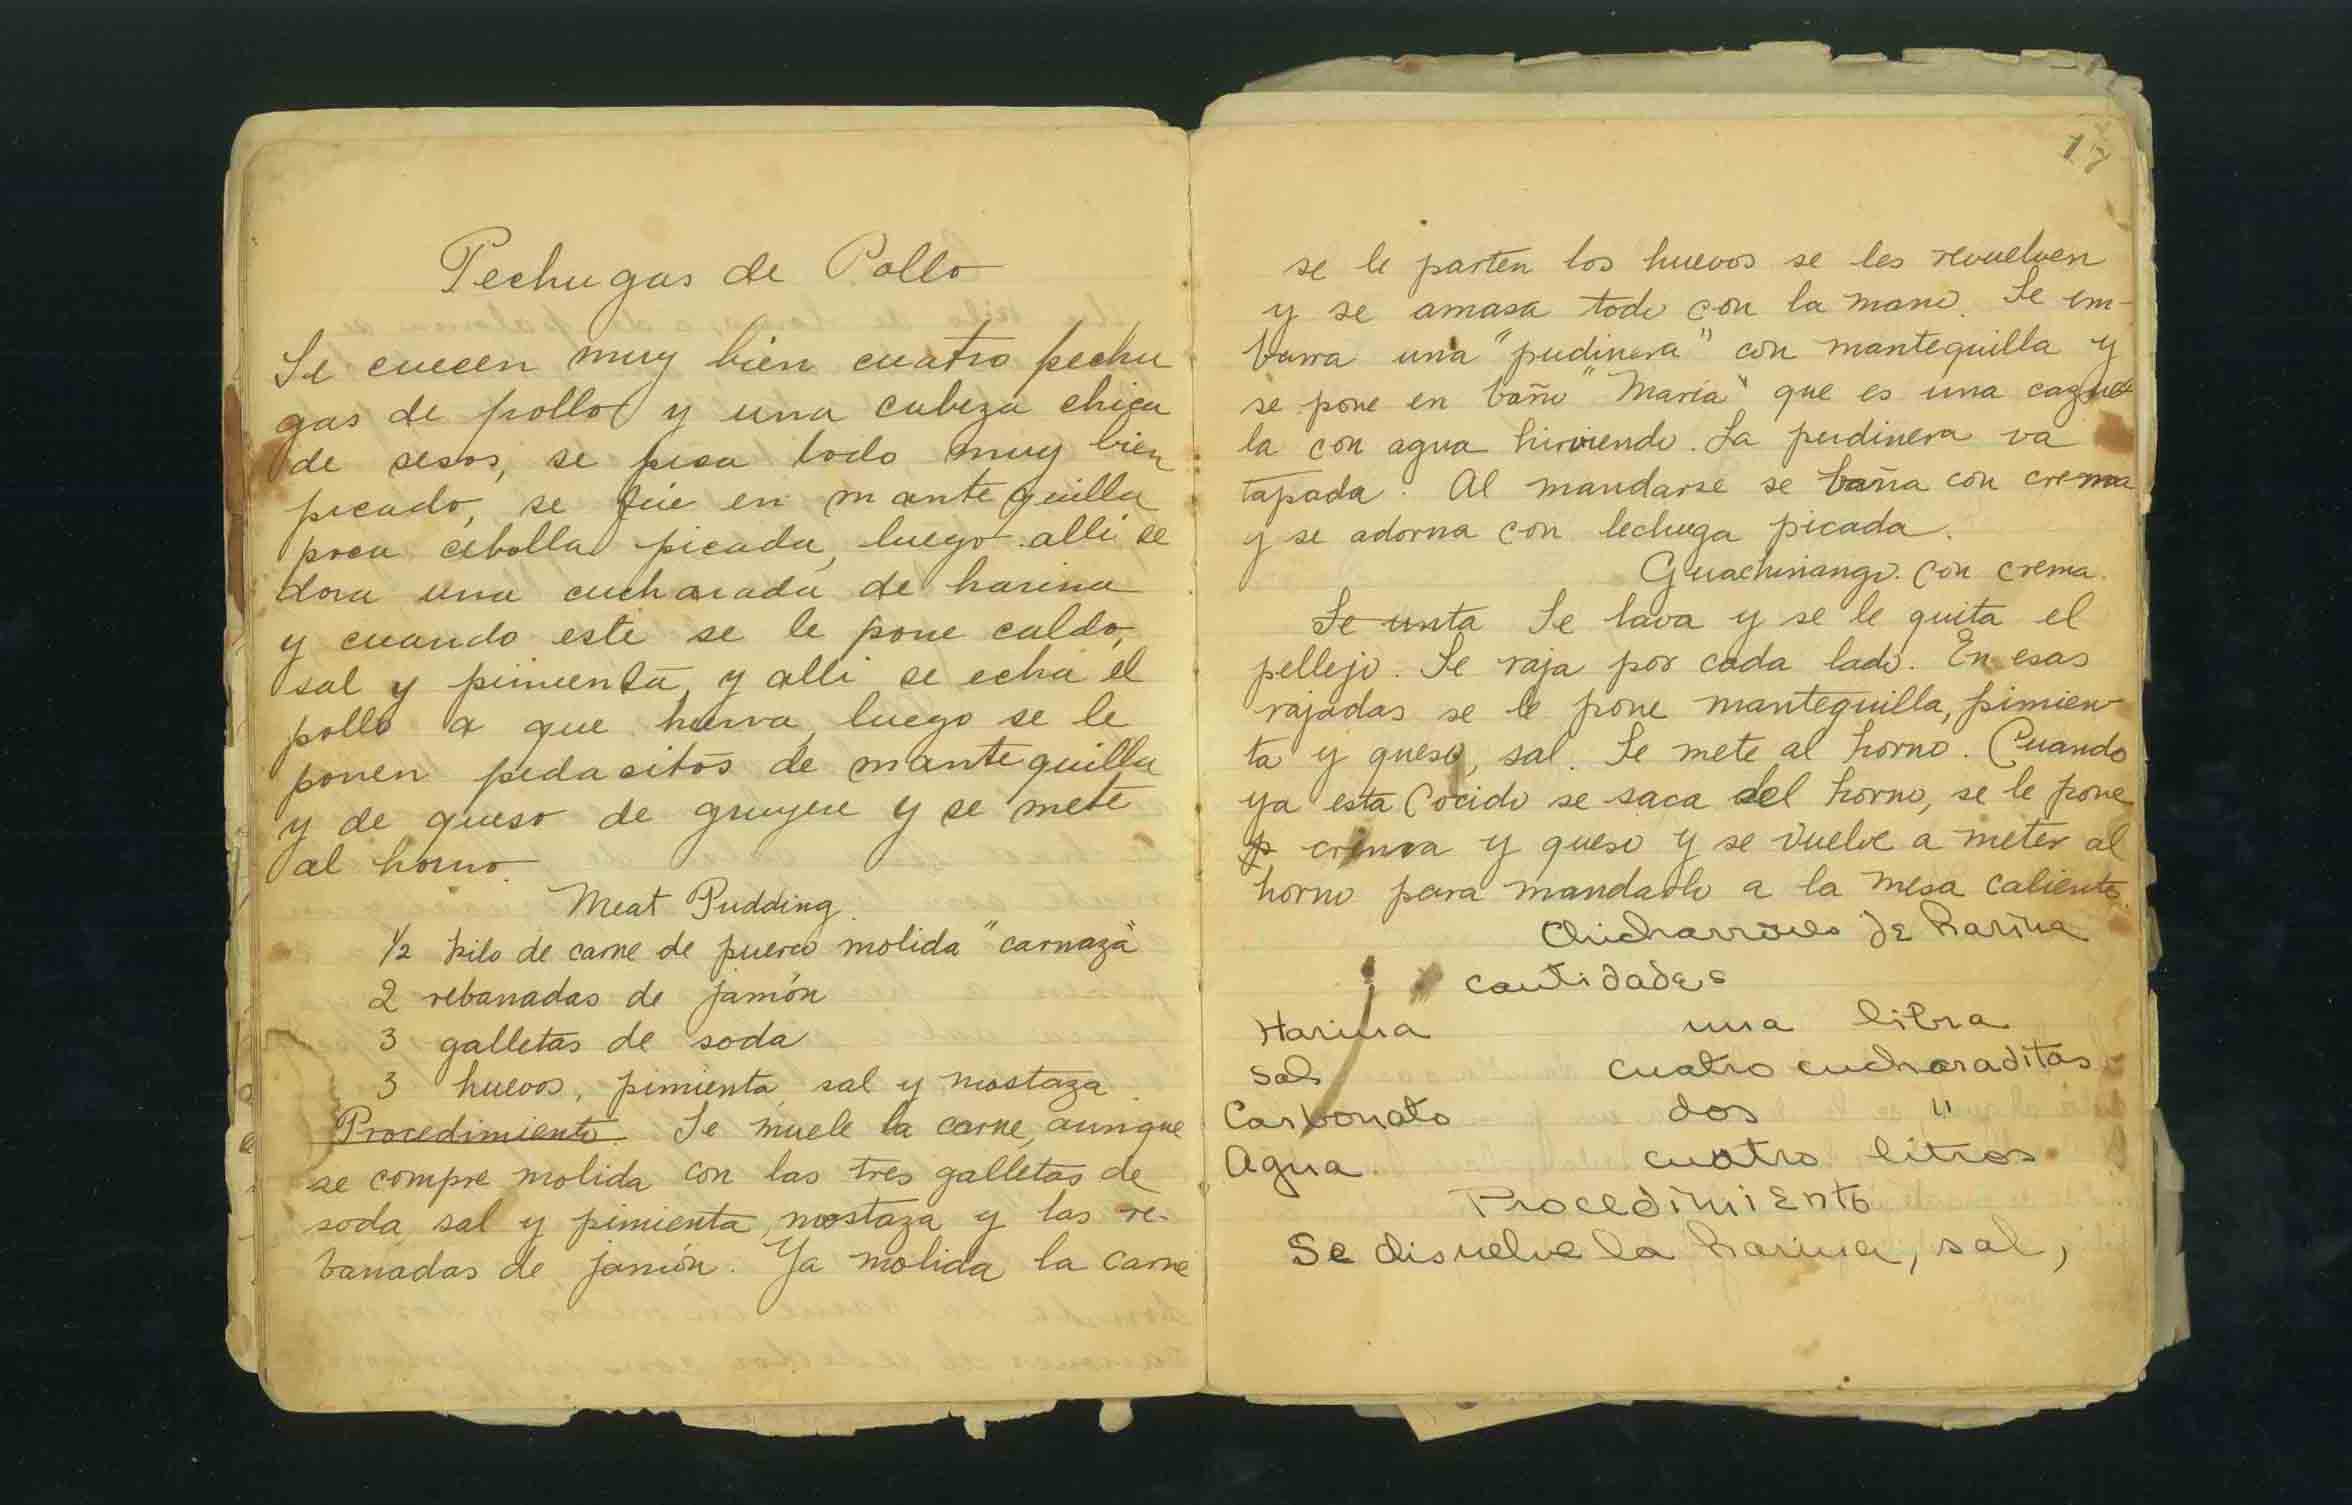 Pechugas de Pollo
Se cuecen muy bien cuatro pechu
gas de pollo y una cabeza chica
de sesos, se pica todo muy bien
picado, se frie en mantequilla
poca cebolla picada, luego alli se
dora una cucharada de harina
y cuando este se le pone caldo,
sal y pimienta, y alli se echa el
pollo a que hierva, luego se le
ponen pedasitos de mantequilla
y de queso de gruyere y se mete
al horno.
Meat Pudding.
1/2 kilo de carne de puerco molida "carnaza"
2 rebanadas de jamón
3 galletas de soda
3 huevos, pimienta, sal y mostaza.
Procedimiento Se muele la carne, aunque
se compre molida con las tres galletas de
soda, sal y pimienta, mostaza y las re-
banadas de jamón. Ya molida la carne
17
se le parten los huevos se les revuelven
y se amasa todo con la mano. Se em-
barra una "pudinera" con mantequilla y
se pone en baño "María" que es una cazue
la con agua hirviendo. La pudinera va
tapada. Al mandarse se baña con crema
y se adorna con lechuga picada.
Guachinango con crema.
Se unta Se lava y se le quita el
pellejo. Se raja por cada lado. En esas
rajadas se le pone mantequilla, pimien-
ta y queso, sal. Se mete al horno. Cuando
ya esta cocido se saca del horno, se le pone
crema y queso y se vuelve a meter al
horno para mandarlo a la mesa caliente.
Chicharrones de harina
Cantidades
Harina una libra
Sal cuatro cucharaditas
Carbonato dos "
Agua cuatro litros
Procedimiento
Se disuelve la harina, sal,